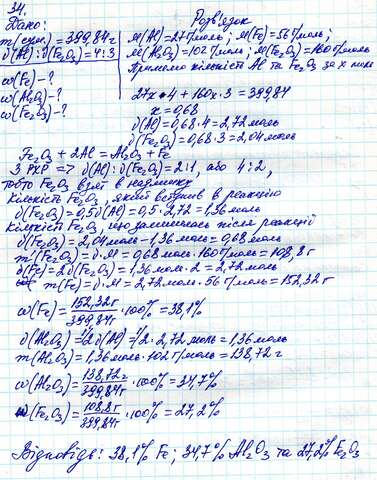 34.
Дано:
m(сум.) = 399,84 г
ν(Al) : ν(Fe₂O₃) = 4 : 3
w(Fe) - ?
w(Al₂O₃) - ?
w(Fe₂O₃) - ?
Розв'язок
M(Al) = 27 г/моль; M(Fe) = 56 г/моль;
M(Al₂O₃) = 102 г/моль; M(Fe₂O₃) = 160 г/моль
Приймемо кількість Al та Fe₂O₃ за x моль
27x·4 + 160x·3 = 399,84
x = 0,68
ν(Al) = 0,68·4 = 2,72 моль
ν(Fe₂O₃) = 0,68·3 = 2,04 моль
Fe₂O₃ + 2Al = Al₂O₃ + Fe
З РХР => ν(Al) : ν(Fe₂O₃) = 2:1, або 4:2,
тобто Fe₂O₃ взят в надлишку
Кількість Fe₂O₃, який вступив в реакцію
ν(Fe₂O₃) = 0,5ν(Al) = 0,5·2,72 = 1,36 моль
Кількість Fe₂O₃, що залишилась після реакції
ν(Fe₂O₃) = 2,04 моль - 1,36 моль = 0,68 моль
m(Fe₂O₃) = ν·M = 0,68 моль·160 г/моль = 108,8 г
ν(Fe) = 2ν(Fe₂O₃) = 1,36 моль·2 = 2,72 моль
m(Fe) = ν·M = 2,72 моль·56 г/моль = 152,32 г
w(Fe) = 152,32 г / 399,84 г ·100% = 38,1%
ν(Al₂O₃) = 1/2 ν(Al) = 1/2·2,72 моль = 1,36 моль
m(Al₂O₃) = 1,36 моль·102 г/моль = 138,72 г
w(Al₂O₃) = 138,72 г / 399,84 г ·100% = 34,7%
w(Fe₂O₃) = 108,8 г / 399,84 г ·100% = 27,2%
Відповідь: 38,1% Fe; 34,7% Al₂O₃ та 27,2% Fe₂O₃